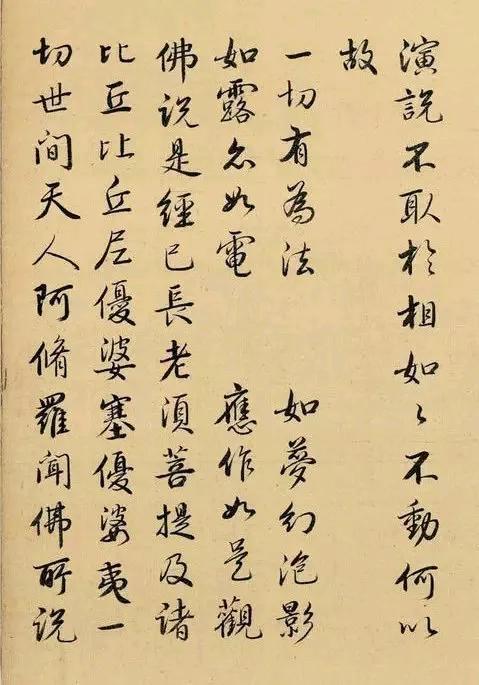 演說不取於相如〻不動何以
故
一切有為法 如夢幻泡影
如露亦如電 應作如是觀
佛說是經已長老須菩提及諸
比丘比丘尼優婆塞優婆夷一
切世間天人阿脩羅聞佛所說